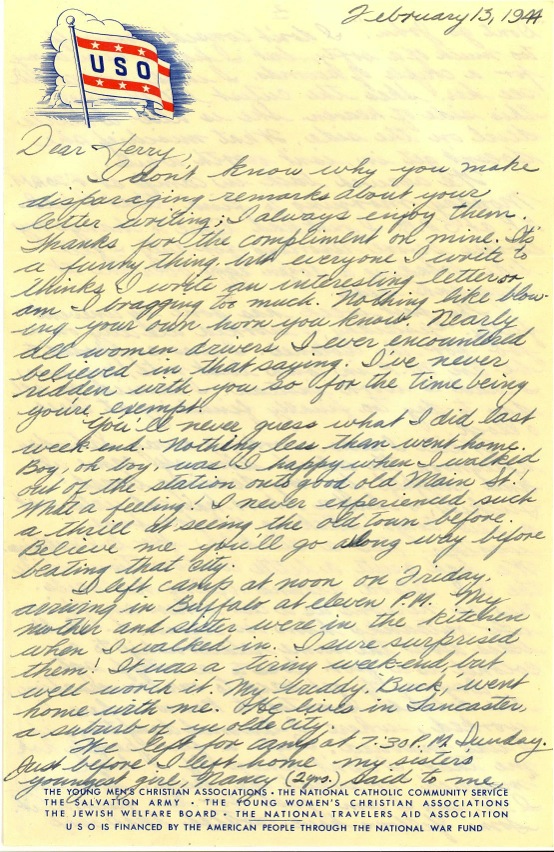 February 13, 1944
USO
Dear Jerry,
I don't know why you make
disparaging remarks about your
letter writing; I always enjoy them.
Thanks for the compliment on mine. It's
a funny thing but everyone I write to
thinks I write an interesting letter or
am I bragging too much. Nothing like blow-
ing your own horn you know. Nearly
all women drivers I ever encountered
believed in that saying. I've never
ridden with you so for the time being
you're exempt.
You'll never guess what I did last
week-end. Nothing less than went home.
Boy, oh boy, was I happy when I walked
out of the station onto good old Main St.!
What a feeling! I never experienced such
a thrill at seeing the old town before.
Believe me you'll go along way before
beating that city.
I left camp at noon on Friday,
arriving in Buffalo at eleven P.M. My
mother and sister were in the kitchen
when I walked in. I sure surprised
them! It was a tiring week-end, but
well worth it. My buddy, Buck, went
home with me. He lives in Lancaster,
a suburb of ye olde city.
We left for camp at 7:30 P.M. Sunday.
Just before I left home my sisters
youngest girl, Nancy (2 yrs.) said to me,
THE YOUNG MEN'S CHRISTIAN ASSOCIATIONS · THE NATIONAL CATHOLIC COMMUNITY SERVICE
THE SALVATION ARMY · THE YOUNG WOMEN'S CHRISTIAN ASSOCIATIONS
THE JEWISH WELFARE BOARD · THE NATIONAL TRAVELERS AID ASSOCIATION
USO IS FINANCED BY THE AMERICAN PEOPLE THROUGH THE NATIONAL WAR FUND